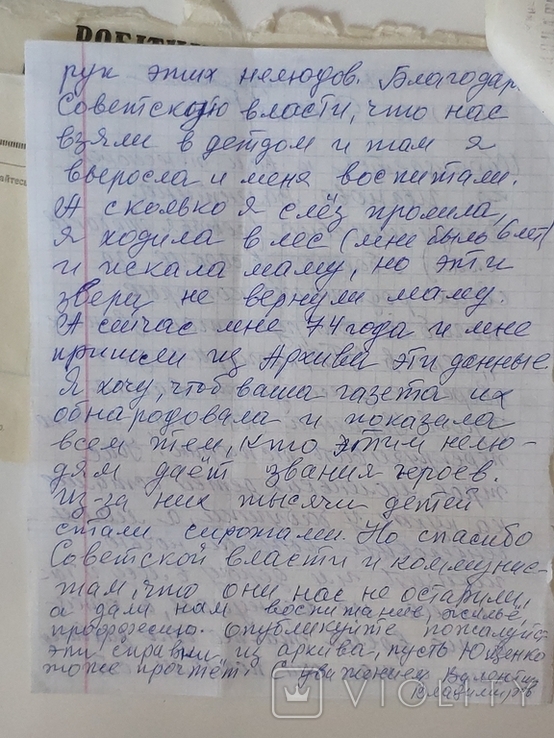 РОБІТН
рук этих нелюдов. Благодар
Советскую власти, что нас
взяли в детдом и там я
выросла и меня воспитали.
А сколько я слёз пролила,
я ходила в лес (мне было 6 лет)
и искала маму, но эти
звери не вернули маму.
А сейчас мне 74 года и мне
пришли из Архива эти данные.
Я хочу, чтоб ваша газета их
обнародовала и показала
всем тем, кто этим нелю-
дям даёт звания героев.
Из-за них тысячи детей
стали сиротами. Но спасибо
Советской власти и коммунис-
там, что они нас не оставили,
а дали нам воспитание, жильё,
профессию. Опубликуйте пожалуйс
эти справки из архива, пусть Ющенко
тоже прочтёт. С уважением
VIOLITY